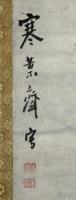 寒葉齋寫